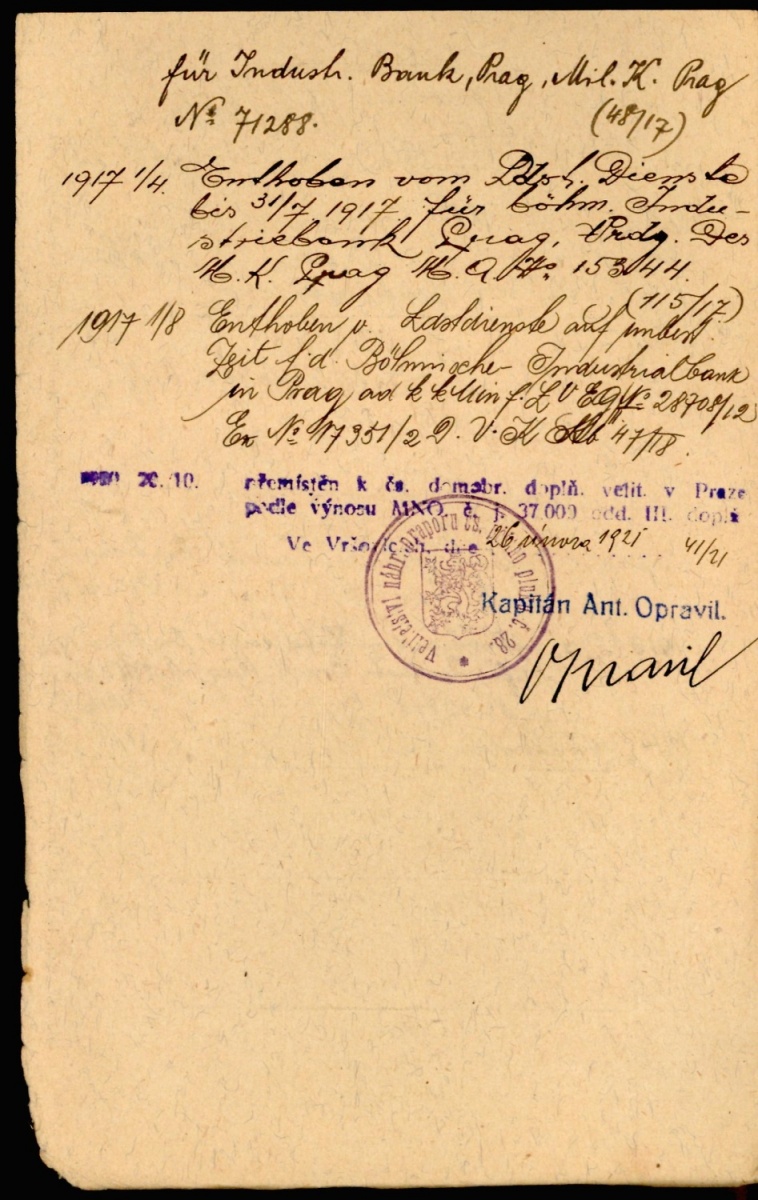 für Industr. Bank, Prag, Mil. K. Prag
No 71288. (48/17)
1917 1/4. Enthoben vom Ldst. Dienste
bis 31/7 1917 für böhm. Indu-
striebank Prag, Vrdg. des
M. K. Prag M. A. No 153044.
(115/17)
1917 1/8 Enthoben v. Ldstdienste auf unbest.
Zeit f. d. Böhmische Industrialbank
in Prag ad k k Min f. L V E No 28708/12
Ex No 17351/2 D. V. K 47/18.
20./10. přemístěn k čs. domobr. doplň. velit. v Praze
podle výnosu MNO. č. j. 37.000 odd. III. dopl.
Ve Vršovicích, dne 26 února 1921 41/21
Velitelství náhr. praporu čs. pěšího pluku č. 28.
Kapitán Ant. Opravil.
Opravil